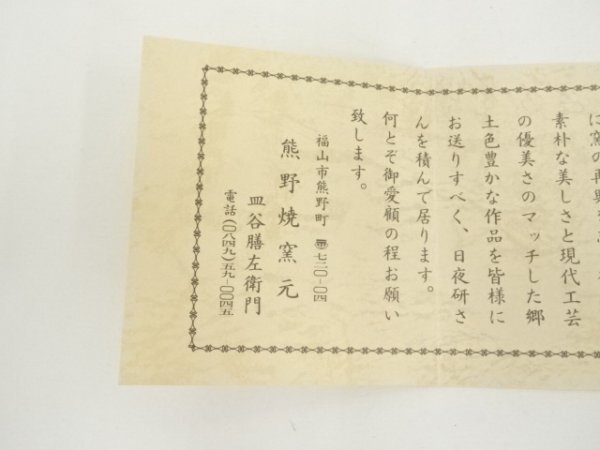 に窯の再興
素朴な美しさと現代工芸
の優美さのマッチした郷
土色豊かな作品を皆様に
お送りすべく、日夜研さ
んを積んで居ります。
何とぞ御愛顧の程お願い
致します。
福山市熊野町 〒七二〇-〇四
熊野焼窯元
皿谷膳左衛門
電話(〇八四九)五九-〇〇四五